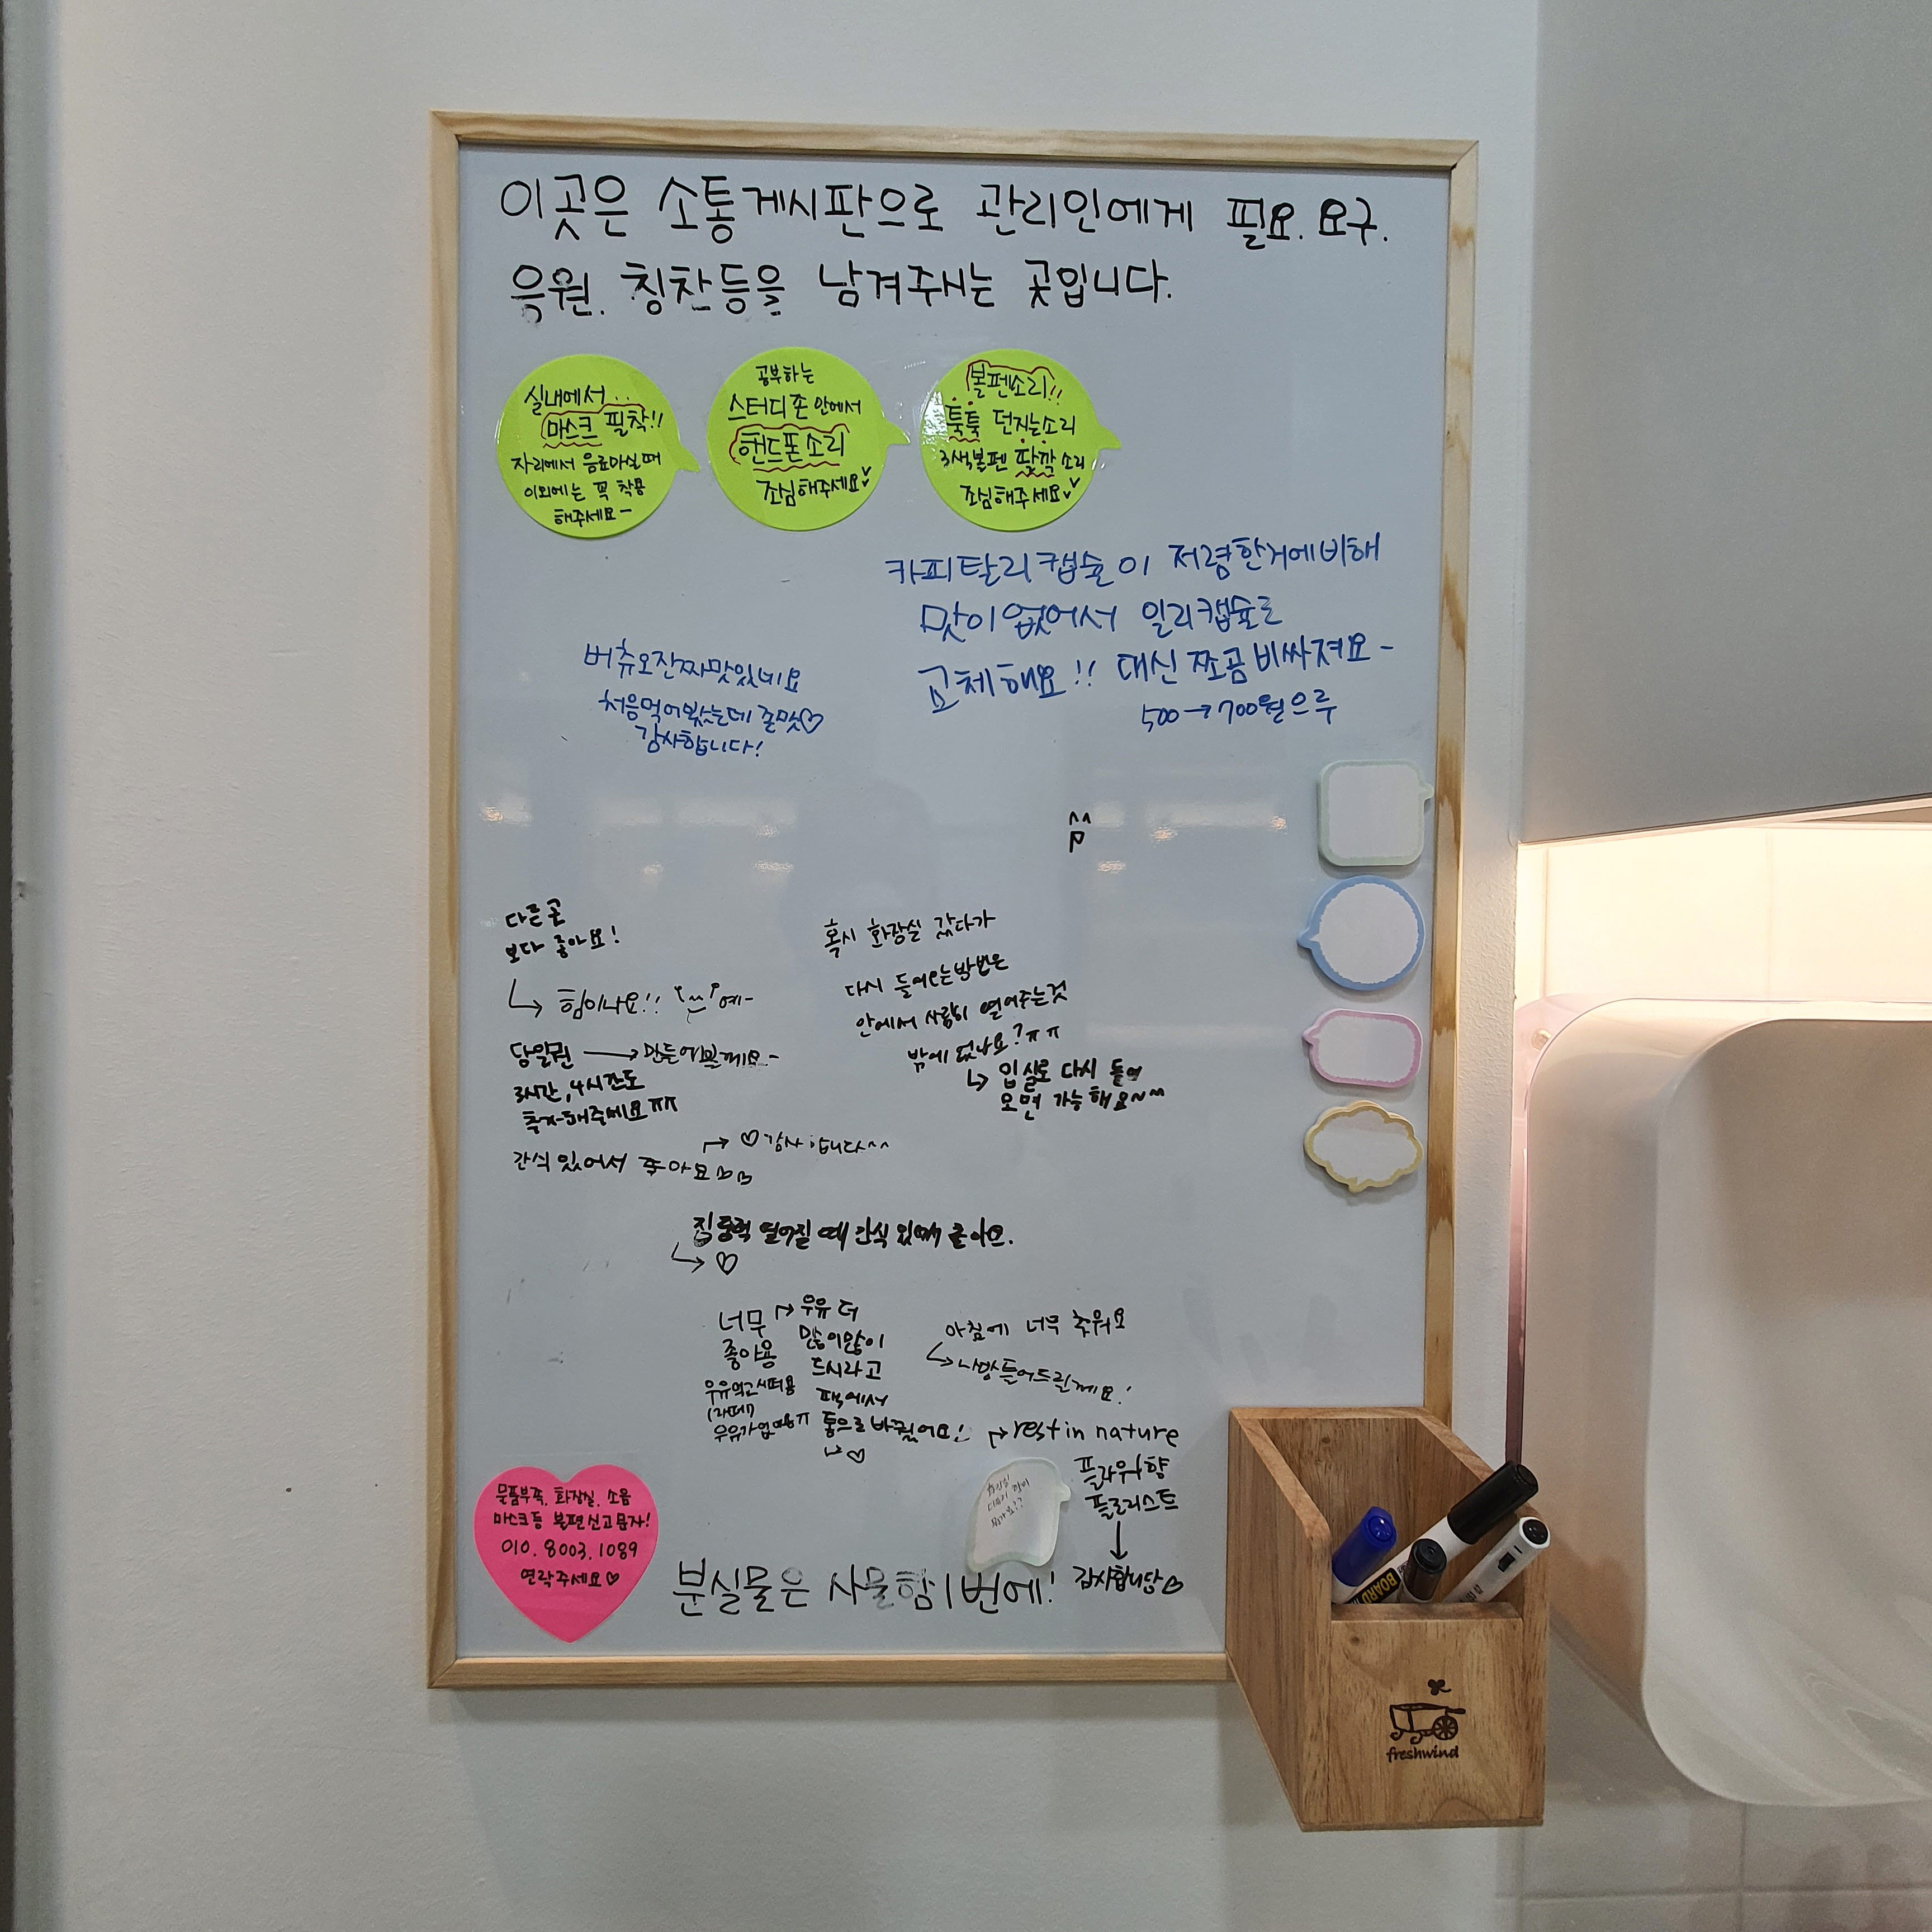 이곳은 소통게시판으로 관리인에게 필요. 요구.
응원. 칭찬등을 남겨주시는 곳입니다.
실내에서..
마스크 필착!!
자리에서 음료마실때
이외에는 꼭 착용
해주세요-
공부하는
스터디존 안에서
핸드폰소리
조심해주세요
볼펜소리!!
툭툭 던지는소리
3색볼펜 딸깍 소리
조심해주세요
카피탈리캡슐이 저렴한거에비해
맛이없어서 일리캡슐로
교체해요!! 대신 쪼곰 비싸져요-
500→700원으루
버츄오진짜맛있네요
처음먹어봤는데 존맛♡
감사합니다!
다른곳
보다 좋아요!
↳ 힘이나요!! 예-
당일권 → 만들어볼께요-
3시간, 4시간도
추가해주세요ㅠㅠ
혹시 화장실 갔다가
다시 들어오는방법은
안에서 사람이 열어주는것
밖에 없나요?ㅠㅠ
↳ 입실로 다시 들어
오면 가능해요~^^
♡감사합니다^^
간식 있어서 좋아요
집중력 떨어질 때 간식 있어서 좋아요.
↳ ♡
너무
좋아용
우유먹고시퍼용
(라떼)
우유가없어용ㅠ
우유 더
많이많이
드시라고
팩에서
통으로 바꿨어요!
↳ ♡
아침에 너무 추워요
↳ 난방틀어드릴께요!
rest in nature
플라워향
플로리스트
↓
감사합니당♡
물품부족, 화장실, 소음
마스크등 불편신고문자!
010. 8003. 1089
연락주세요♡
분실물은 사물함 1번에!
BOARD
freshwind